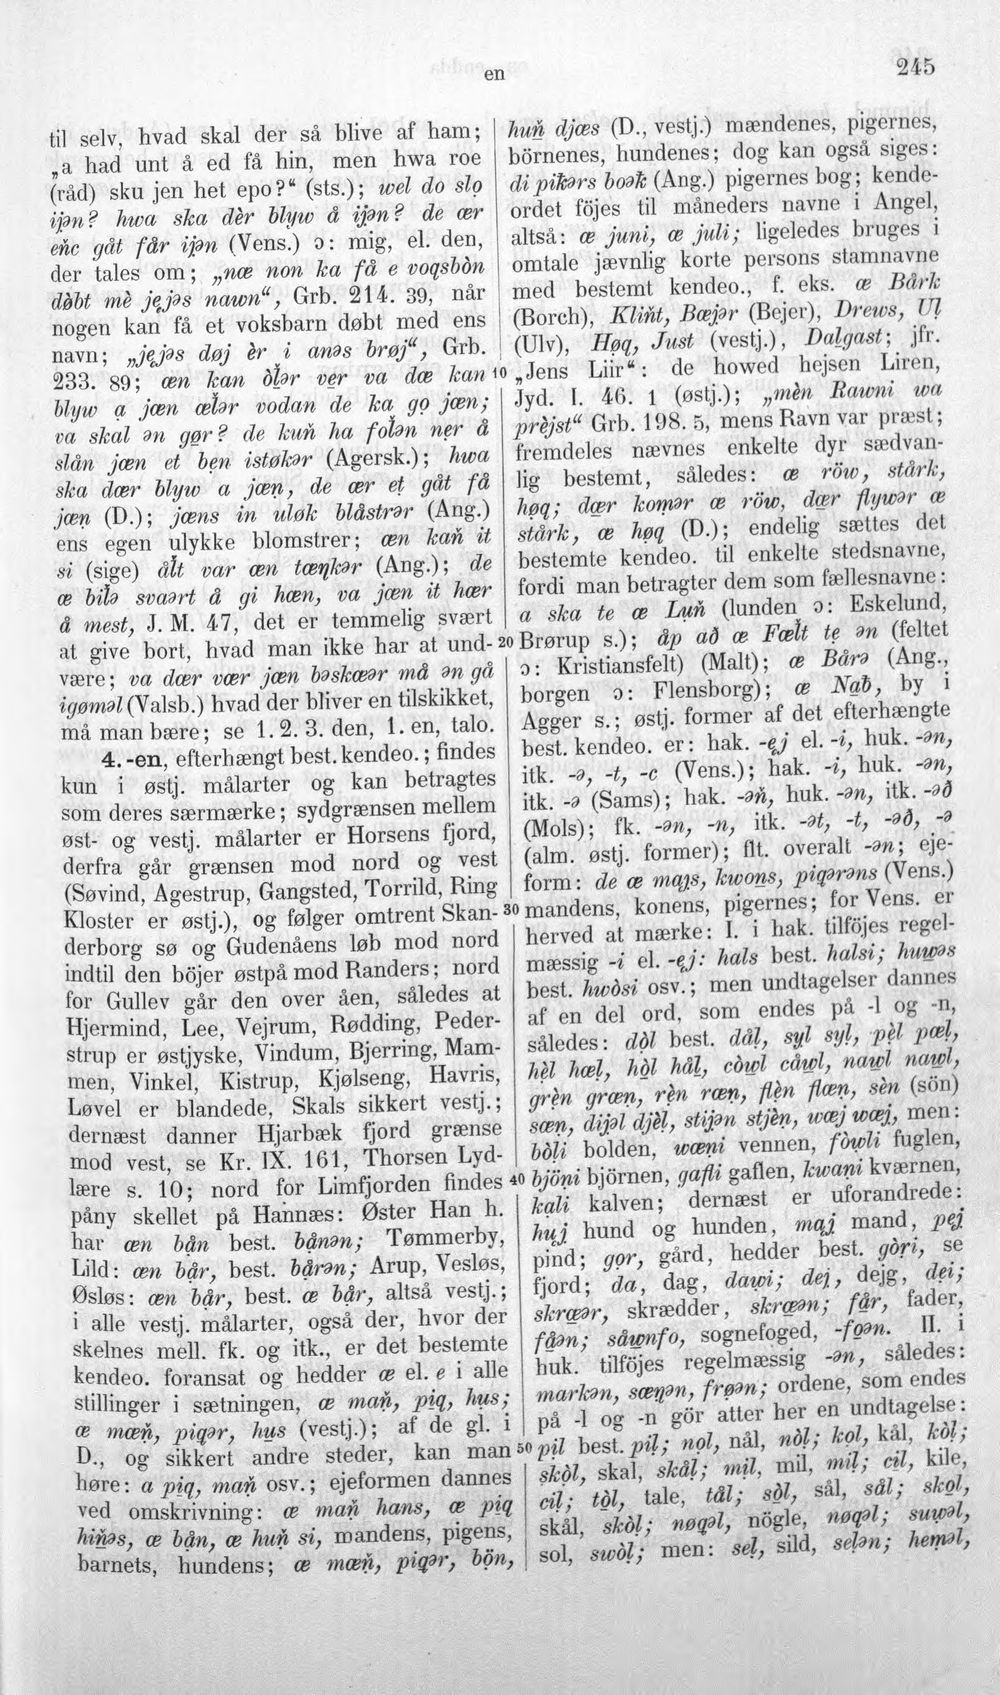 en
245
til selv, hvad skal der så blive af ham;
„a had unt å ed få hin, men hwa roe
(råd) sku jen het epo?“ (sts.); wel do slo̩
ijən? hwa ska dèr blyw å ijən? de œr
eṅc gåt får ijən (Vens.) ɔ: mig, el. den,
der tales om; „næ non ka få e voqsbòn
dòbt mè je̩jəs nawn“, Grb. 214. 39, når
nogen kan få et voksbarn døbt med ens
navn; „je̩jəs døj èr i anəs brøj“, Grb.
233. 89; œn kan òlər ve̩r va dœ kan
blyw a̩ jœn œlər vodan de ka̩ go̩ jœn;
va skal ən gø̩r? de kuṅ ha folən ne̩r å
slån jœn et be̩n istøkər (Agersk.); hwa
ska dœr blyw a jœn̩, de œr et̩ gåt få
jœn̩ (D.); jœns in uløk blåstrər (Ang.)
ens egen ulykke blomstrer; œn kaṅ it
si (sige) ålt var œn tœn̩kər (Ang.); de
œ bilə svaərt å gi hœn, va jœn it hœr
å mest, J. M. 47, det er temmelig svært
at give bort, hvad man ikke har at und-
være; va dœr vœr jœn bəskœər må ən gå
igøməl (Valsb.) hvad der bliver en tilskikket,
må man bære; se 1. 2. 3. den, 1. en, talo.
4. -en, efterhængt best. kendeo.; findes
kun i østj. målarter og kan betragtes
som deres særmærke; sydgrænsen mellem
øst- og vestj. målarter er Horsens fjord,
derfra går grænsen mod nord og vest
(Søvind, Agestrup, Gangsted, Torrild, Ring
Kloster er østj.), og følger omtrent Skan-
derborg sø og Gudenåens løb mod nord
indtil den böjer østpå mod Randers; nord
for Gullev går den over åen, således at
Hjermind, Lee, Vejrum, Rødding, Peder-
strup er østjyske, Vindum, Bjerring, Mam-
men, Vinkel, Kistrup, Kjølseng, Havris,
Løvel er blandede, Skals sikkert vestj.;
dernæst danner Hjarbæk fjord grænse
mod vest, se Kr. IX. 161, Thorsen Lyd-
lære s. 10; nord for Limfjorden findes
påny skellet på Hannæs: Øster Han h.
har œn bå̩n best. bå̩nən; Tømmerby,
Lild: œn bå̩r, best. bå̩rən; Arup, Vesløs,
Øsløs: œn bå̩r, best. œ bå̩r, altså vestj.;
i alle vestj. målarter, også der, hvor der
skelnes mell. fk. og itk., er det bestemte
kendeo. foransat og hedder œ el. e i alle
stillinger i sætningen, œ maṅ, pi̩q, hu̩s;
œ mœṅ, piqər, hu̩s (vestj.); af de gl. i
D., og sikkert andre steder, kan man
høre: a piq, maṅ osv.; ejeformen dannes
ved omskrivning: œ maṅ hans, œ pi̩q
hiṅəs, œ bå̩n, œ huṅ si, mandens, pigens,
barnets, hundens; œ mœṅ, piqər, bö̩n,
huṅ djœs (D., vestj.) mændenes, pigernes,
börnenes, hundenes; dog kan også siges:
di pikərs boək (Ang.) pigernes bog; kende-
ordet föjes til måneders navne i Angel,
altså: œ juni, œ juli; ligeledes bruges i
omtale jævnlig korte persons stamnavne
med bestemt kendeo., f. eks. œ Bårk
(Borch), Kliṅt, Bœjər (Bejer), Drews, Ul̩
(Ulv), Hø̩q, Just (vestj.), Dalgast; jfr.
10 „Jens Liir“: de howed hejsen Liren,
Jyd. I. 46. 1 (østj.); „mèn Rawni wa
prèjst“ Grb. 198. 5, mens Ravn var præst;
fremdeles nævnes enkelte dyr sædvan-
lig bestemt, således: œ röw, stårk,
hø̩q; dœ̩r kom̩ər œ röw, dœ̩r flywər œ
stårk, œ hø̩q (D.); endelig sættes det
bestemte kendeo. til enkelte stedsnavne,
fordi man betragter dem som fællesnavne:
a ska te œ Luṅ (lunden ɔ: Eskelund,
20 Brørup s.); åp að œ Fœlt te̩ ən (feltet
ɔ: Kristiansfelt) (Malt); œ Bårə (Ang.,
borgen ɔ: Flensborg); œ Na̩b, by i
Agger s.; østj. former af det efterhængte
best. kendeo. er: hak. -e̩j el. -i, huk. -ən,
itk. -ə, -t, -c (Vens.); hak. -i, huk. -ən,
itk. -ə (Sams); hak. -əṅ, huk. -ən, itk. -əð
(Mols); fk. -ən, -n, itk. -ət, -t, -əð, -ə
(alm. østj. former); flt. overalt -ən; eje-
form: de œ ma̩js, kwo̩ns, piqərəns (Vens.)
30 mandens, konens, pigernes; for Vens. er
herved at mærke: I. i hak. tilföjes regel-
mæssig -i el. -e̩j: hals best. halsi; huwəs
best. hwòsi osv.; men undtagelser dannes
af en del ord, som endes på -l og -n,
således: dòl best. dål̩, syl syl̩, pèl pœl̩,
hèl hœl̩, hòl hål̩, còwl cåwl̩, nawl nawl̩,
grèn grœn̩, rèn rœn̩, flèn flœn̩, sèn (sön)
sœn̩, dijəl djèl̩, stijən stjèn̩, wœj wœj̩, men:
bòl̩i bolden, wœn̩i vennen, fòwli fuglen,
40 bjön̩i björnen, gafli gaflen, kwan̩i kværnen,
ka̩li kalven; dernæst er uforandrede:
hu̩j hund og hunden, ma̩j mand, pe̩j
pind; go̩r, gård, hedder best. gòr̩i, se
fjord; da, dag, dawi; dej, dejg, de̩i;
skrœ̩ər, skrædder, skrœ̩ən; få̩r, fader,
få̩ən; såwnfo, sognefoged, -fo̩ən. II. i
huk. tilföjes regelmæssig -ən, således:
markən, sœn̩ən, frø̩ən; ordene, som endes
på -l og -n gör atter her en undtagelse:
50 pi̩l best. pil̩; no̩l, nål, nòl̩; kol, kål, kòl̩;
skòl, skal, skål̩; mi̩l, mil, mil̩; ci̩l, kile,
cil̩; tòl, tale, tål̩; sòl, sål, sål̩; sko̩l,
skål, skòl̩; nøqəl, nögle, nøqəl̩; suwəl,
sol, swòl̩; men: sel̩, sild, sel̩ən; hem̩əl,